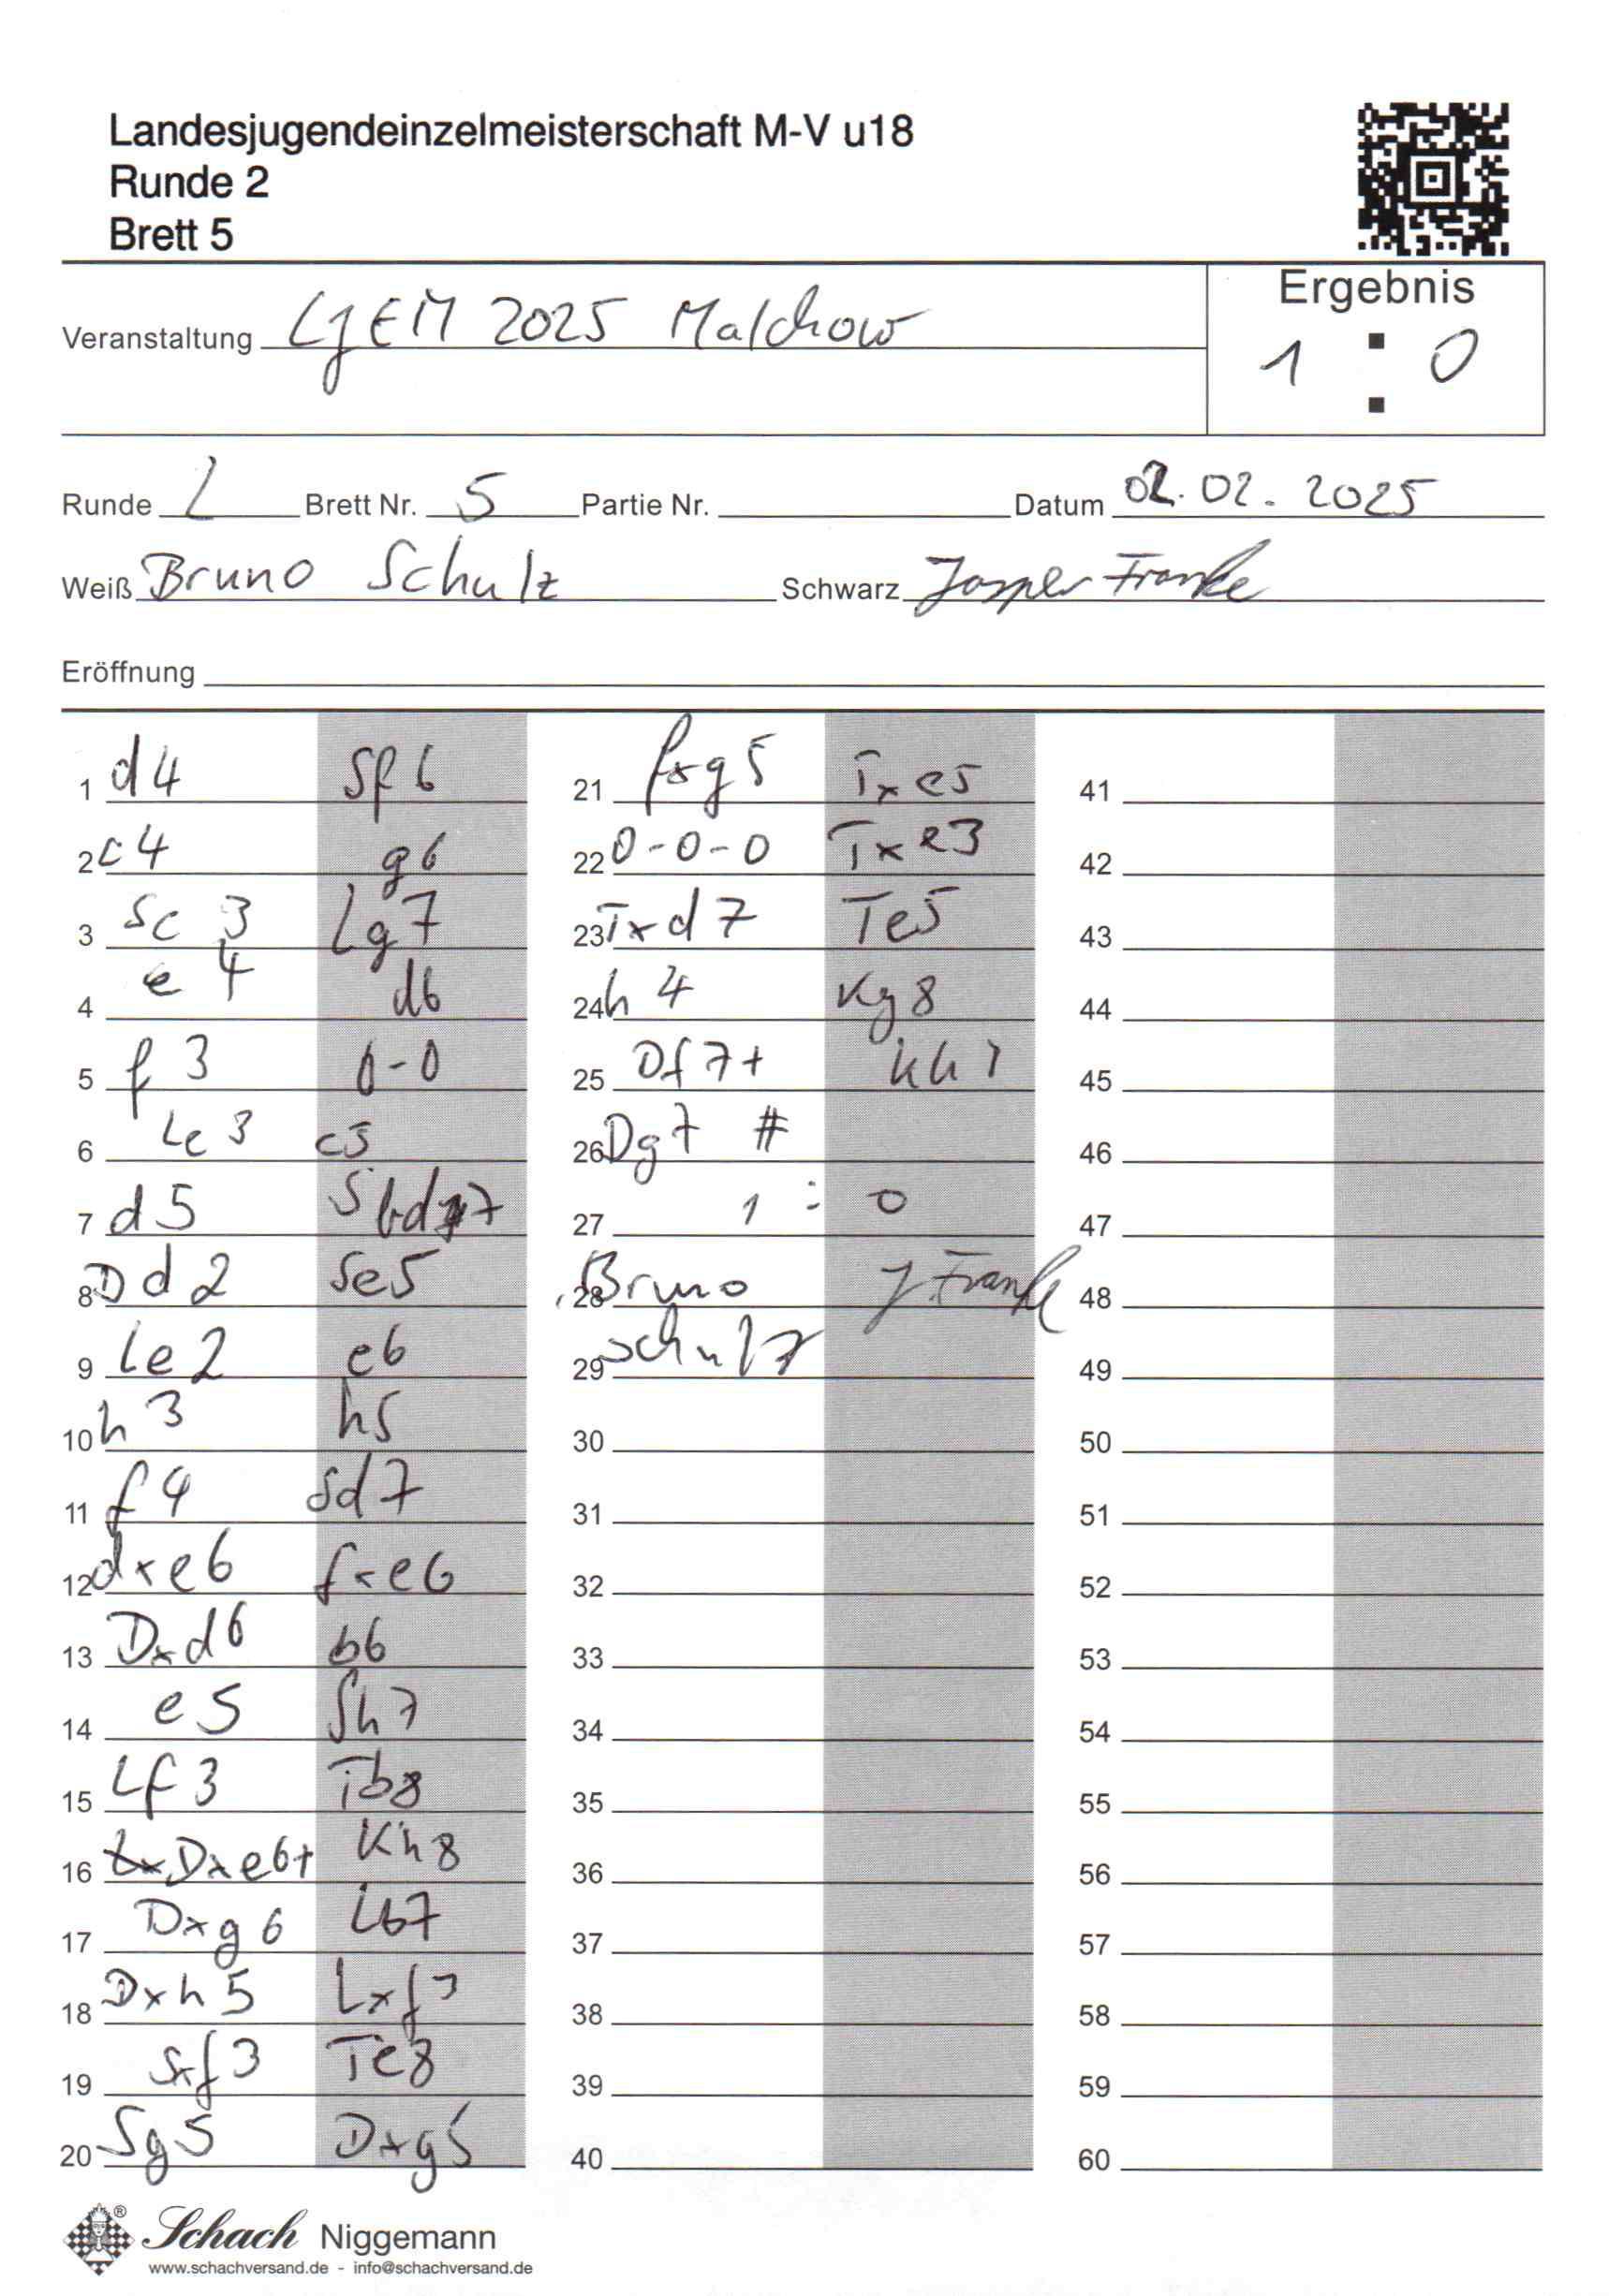 Landesjugendeinzelmeisterschaft M-V u18
Runde 2
Brett 5
Ergebnis
Veranstaltung LJEM 2025 Malchow
1 : 0
Runde 2 Brett Nr. 5 Partie Nr. Datum 02.02.2025
Weiß Bruno Schulz Schwarz Jasper Franke
Eröffnung
1 d4 Sf6 21 fxg5 Txe5 41
2 c4 g6 22 0-0-0 Txe3 42
3 Sc3 Lg7 23 Txd7 Te5 43
4 e4 d6 24 h4 Kg8 44
5 f3 0-0 25 Df7+ Kh7 45
6 Le3 c5 26 Dg7 # 46
7 d5 Sbd7 27 1 : 0 47
8 Dd2 Se5 28 Bruno J Franke 48
9 Le2 e6 29 Schulz 49
10 h3 h5 30 50
11 f4 Sd7 31 51
12 dxe6 fxe6 32 52
13 Dxd6 b6 33 53
14 e5 Sh7 34 54
15 Lf3 Tb8 35 55
16 Dxe6+ Kh8 36 56
17 Dxg6 Lb7 37 57
18 Dxh5 Lxf3 38 58
19 Sxf3 Te8 39 59
20 Sg5 Dxg5 40 60
Schach Niggemann
www.schachversand.de - info@schachversand.de